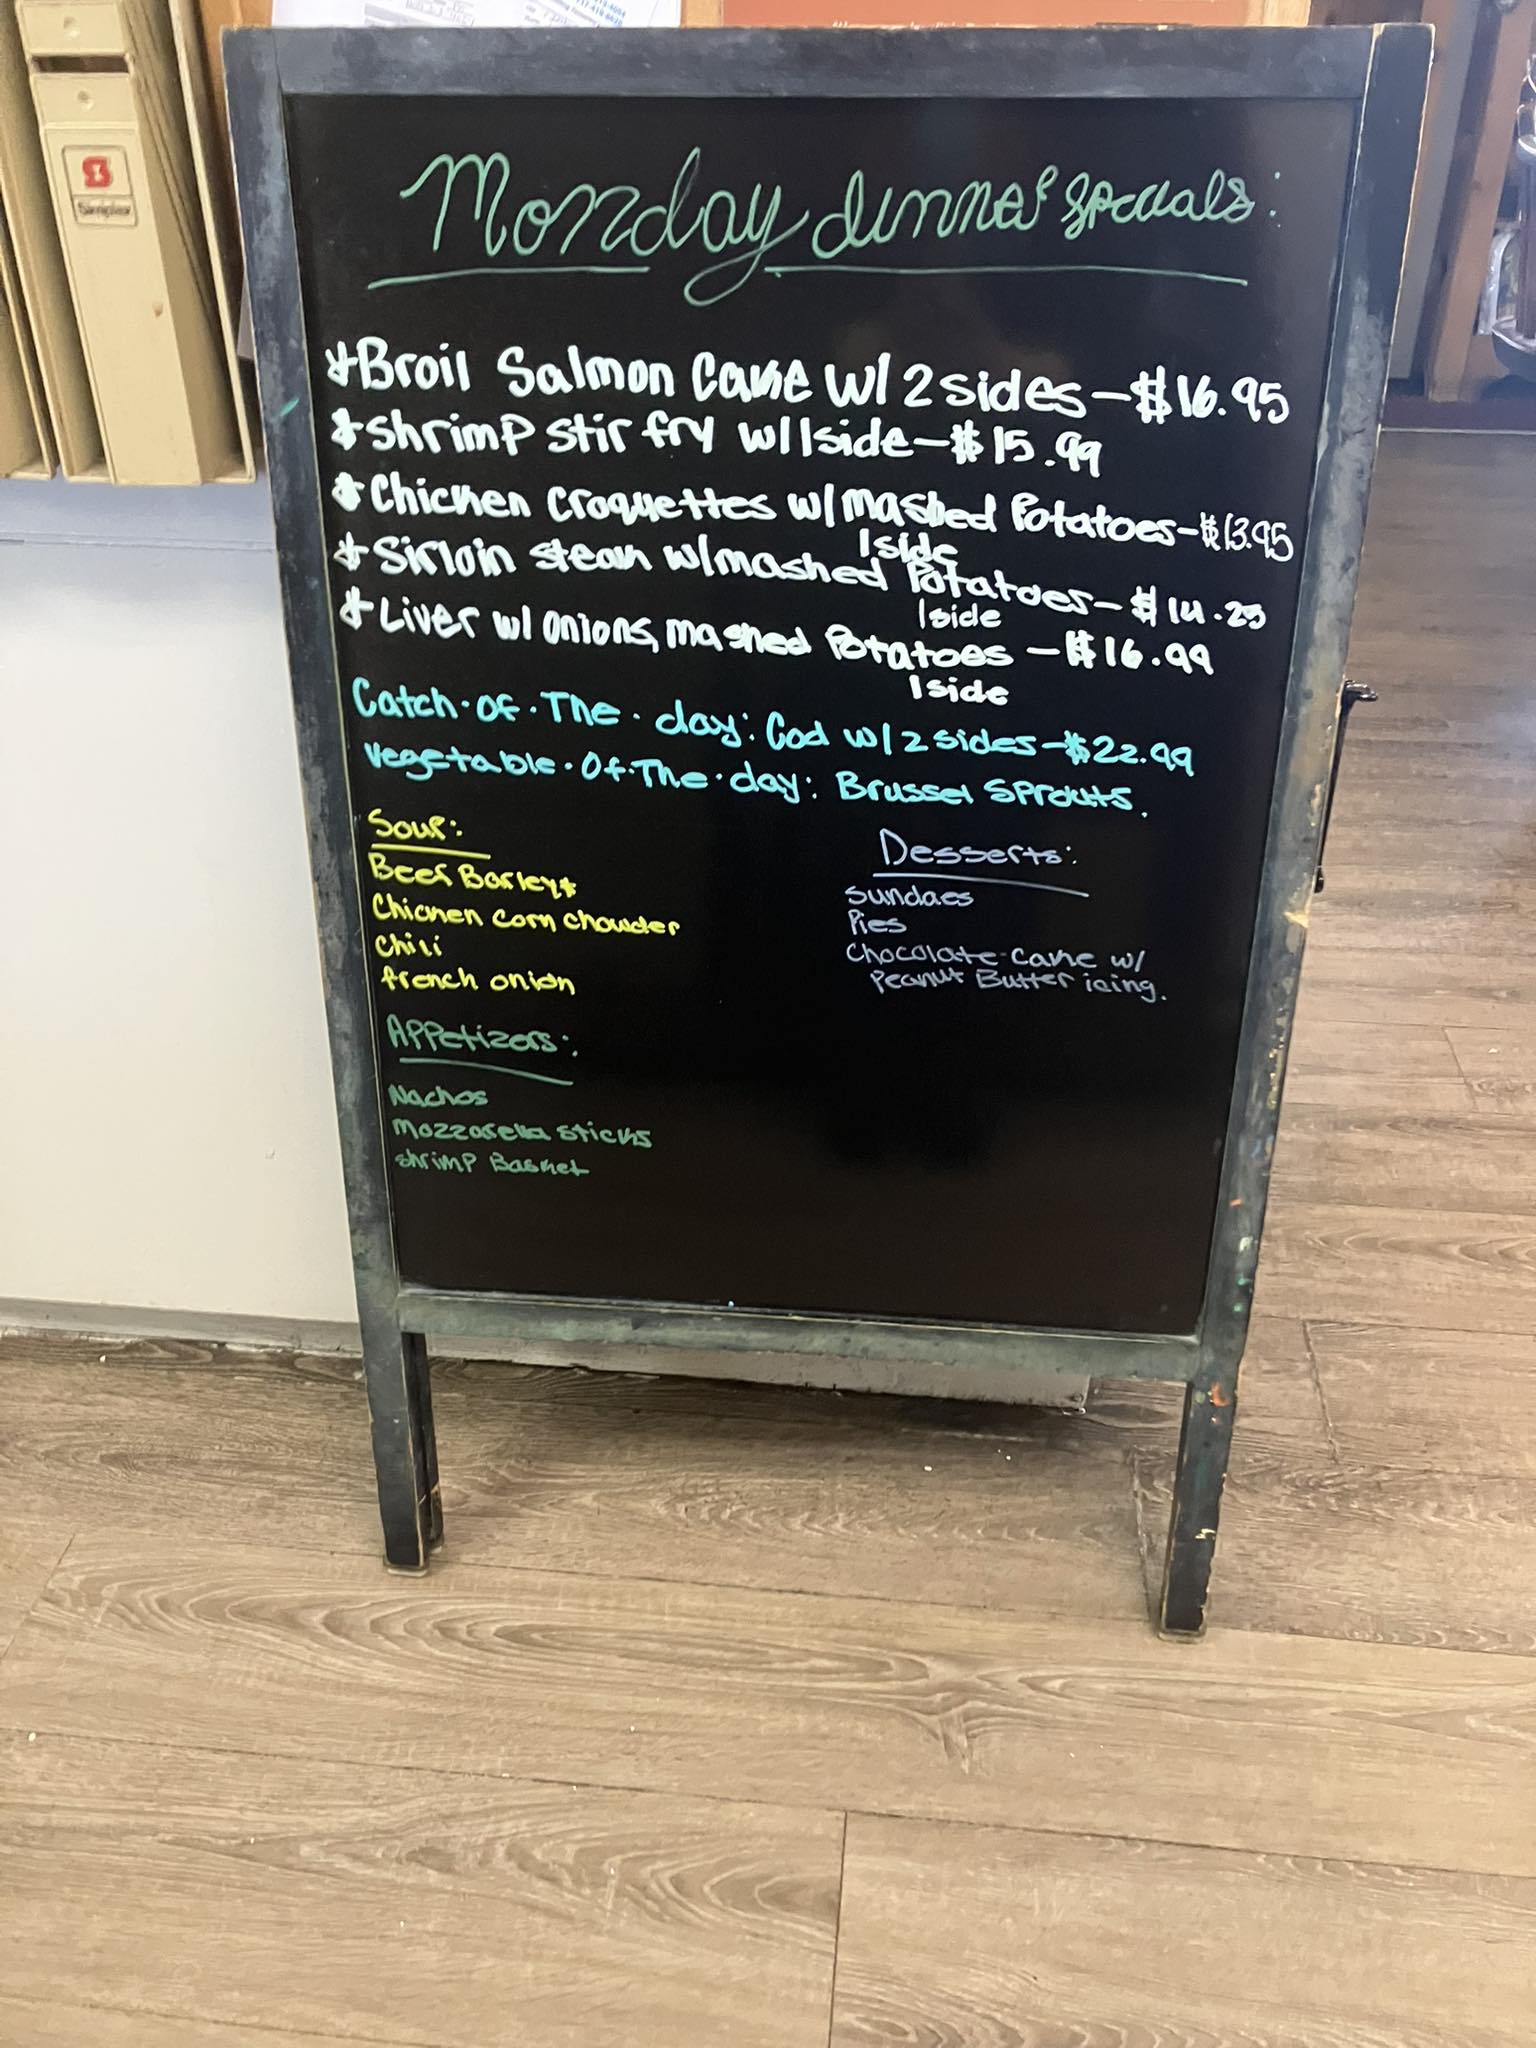 Monday dinner specials:
*Broil Salmon Cake w/ 2 sides - $16.95
*shrimp stir fry w/ 1 side - $15.99
*Chicken Croquettes w/ mashed Potatoes - $13.95
1 side
*Sirloin steak w/ mashed Potatoes - $14.25
1 side
*Liver w/ onions, mashed Potatoes - $16.99
1 side
Catch·of·The·day: Cod w/ 2 sides - $22.99
Vegetable·Of·The·day: Brussel Sprouts.
Soup:
Beef Barley*
Chicken corn chowder
chili
french onion
Appetizers:
Nachos
mozzorella sticks
shrimp Basket
Desserts:
sundaes
Pies
Chocolate cake w/
Peanut Butter icing.